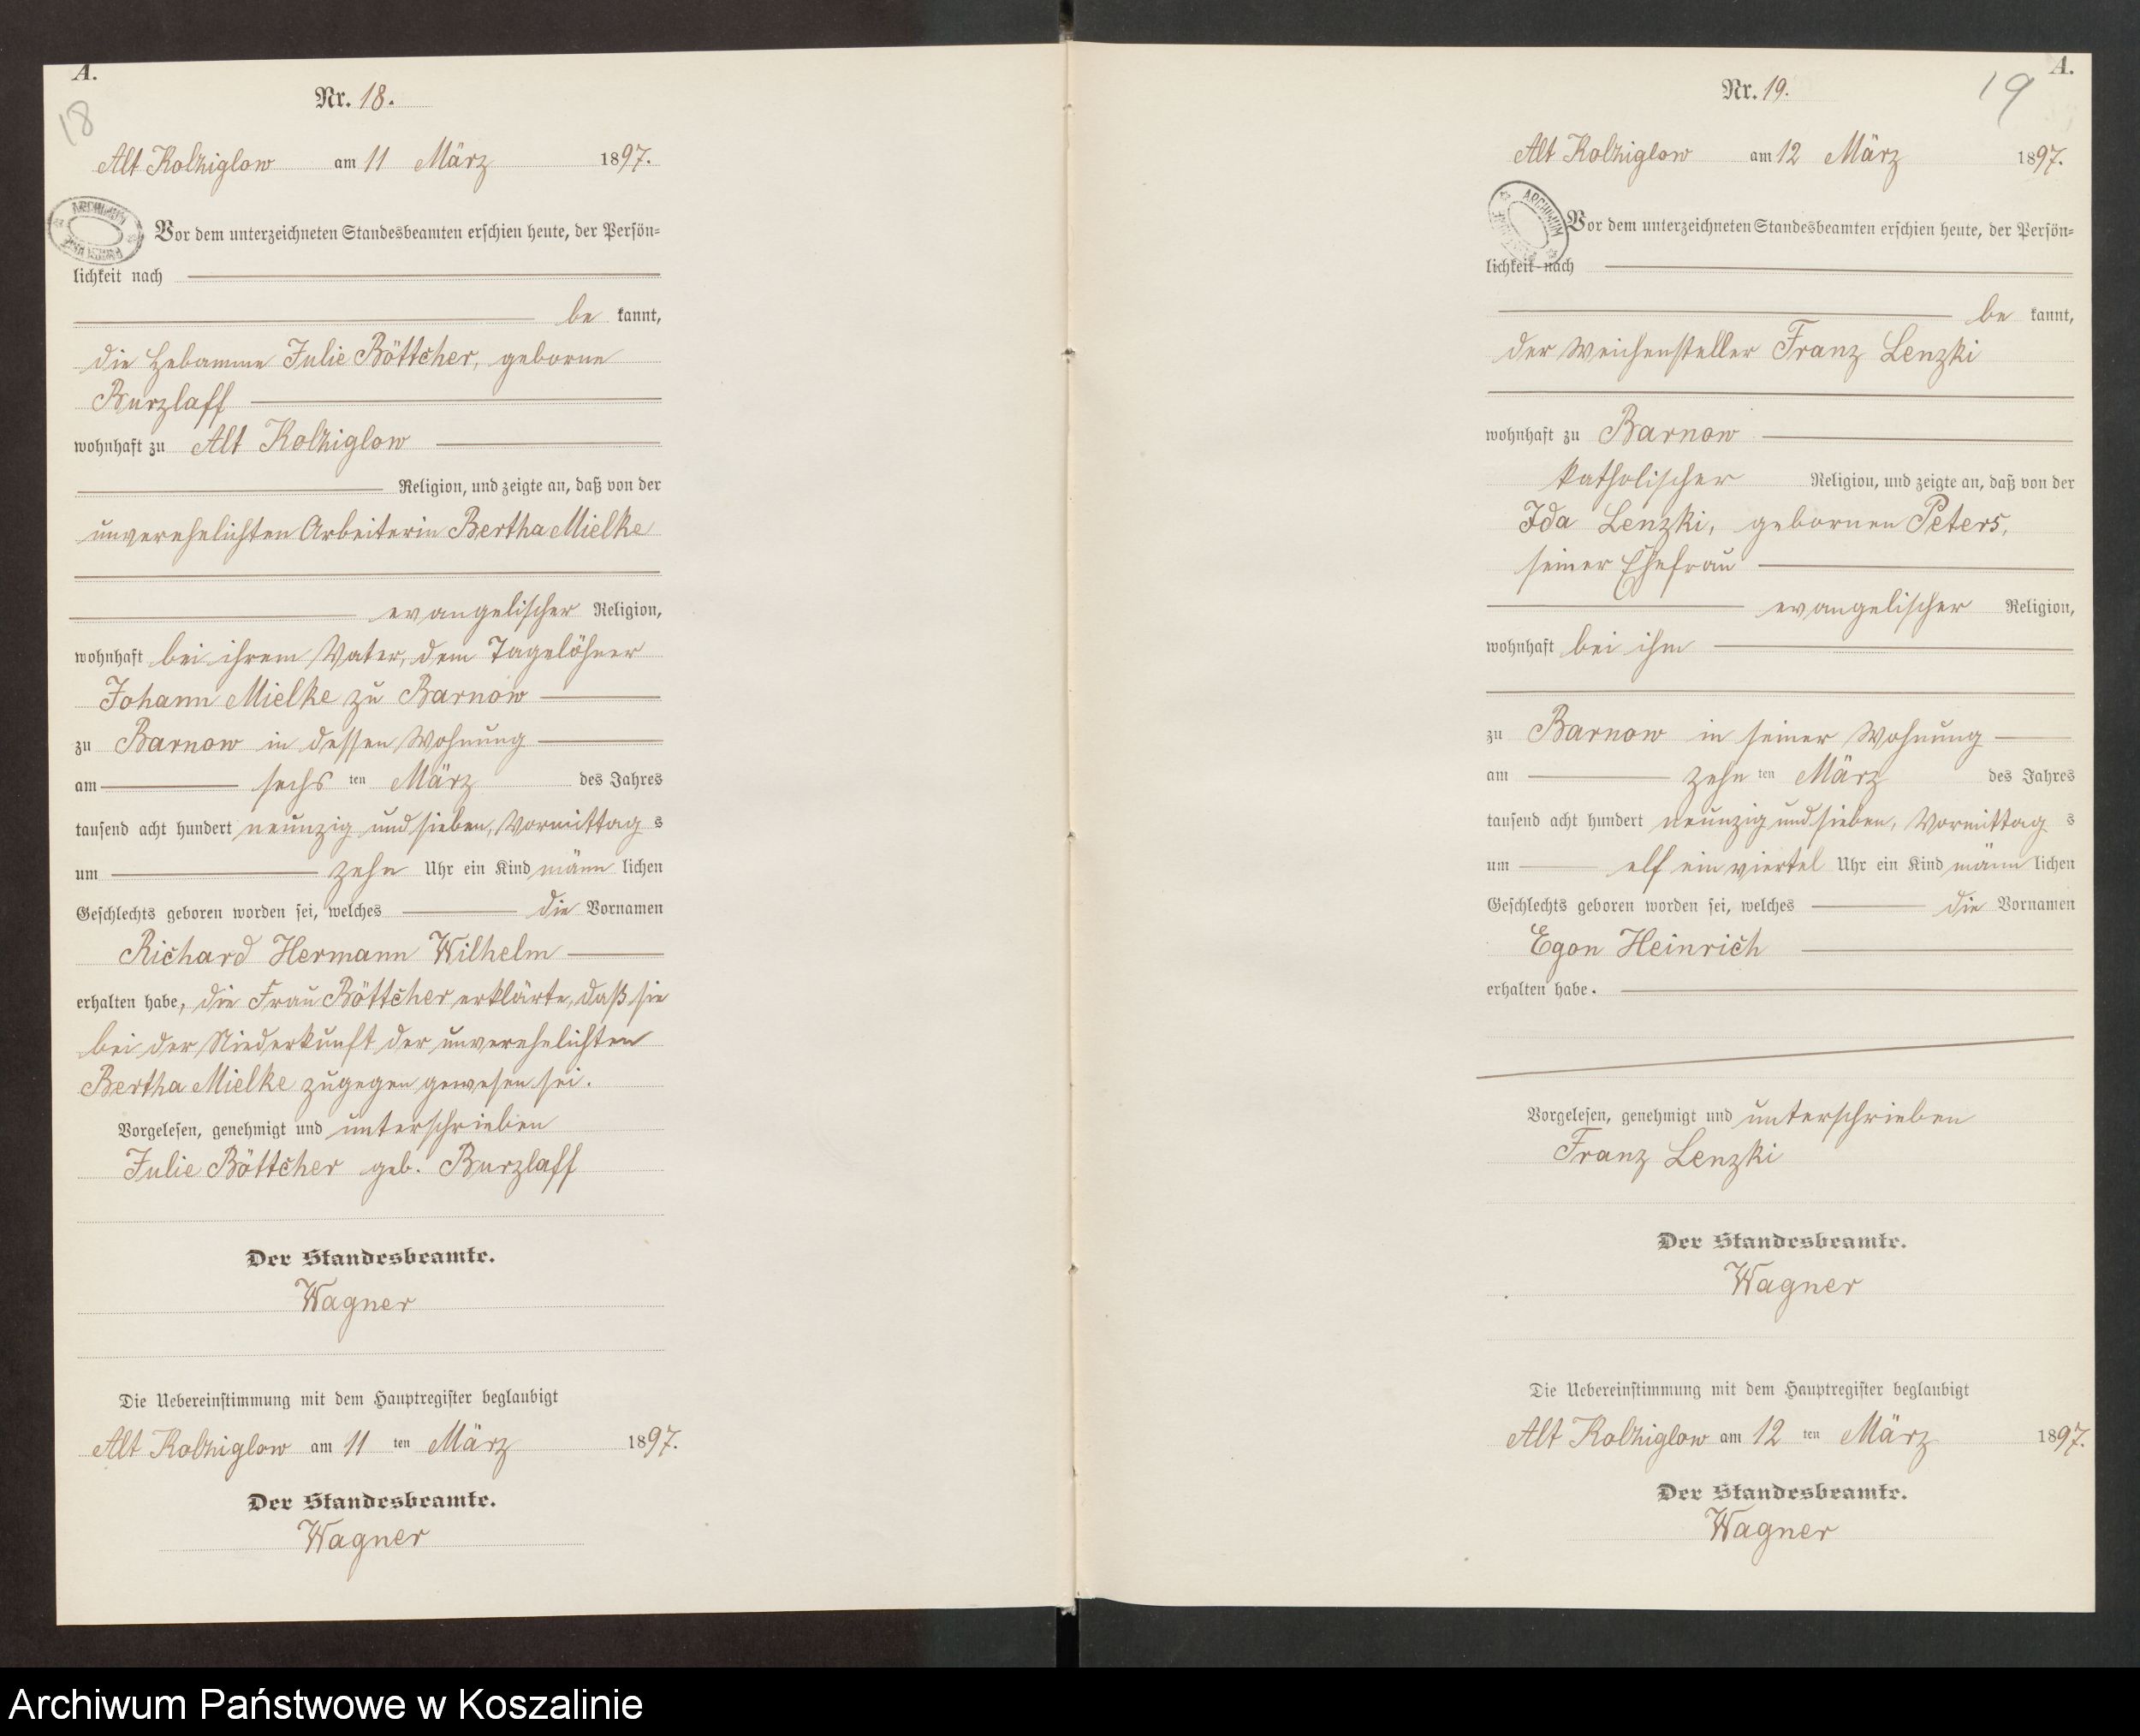 A.
18
Nr. 18.
Alt Kolziglow am 11 März 1897.
ARCHIWUM
Vor dem unterzeichneten Standesbeamten erschien heute, der Persön=
lichkeit nach
be kannt,
die Hebamme Julie Böttcher, geborne
Burzlaff
wohnhaft zu Alt Kolziglow
Religion, und zeigte an, daß von der
unverehelichten Arbeiterin Bertha Mielke
evangelischer Religion,
wohnhaft bei ihrem Vater, dem Tagelöhner
Johann Mielke zu Barnow
zu Barnow in dessen Wohnung
am sechs ten März des Jahres
tausend acht hundert neunzig und sieben, Vormittag s
um zehn Uhr ein Kind männ lichen
Geschlechts geboren worden sei, welches die Vornamen
Richard Hermann Wilhelm
erhalten habe, die Frau Böttcher erklärte, daß sie
bei der Niederkunft der unverehelichten
Bertha Mielke zugegen gewesen sei.
Vorgelesen, genehmigt und unterschrieben
Julie Böttcher geb. Burzlaff
Der Standesbeamte.
Wagner
Die Uebereinstimmung mit dem Hauptregister beglaubigt
Alt Kolziglow am 11 ten März 1897.
Der Standesbeamte.
Wagner
A.
19
Nr. 19.
Alt Kolziglow am 12 März 1897.
ARCHIWUM
Vor dem unterzeichneten Standesbeamten erschien heute, der Persön=
lichkeit nach
be kannt,
der Weichensteller Franz Lenzki
wohnhaft zu Barnow
katholischer Religion, und zeigte an, daß von der
Ida Lenzki, gebornen Peters,
seiner Ehefrau
evangelischer Religion,
wohnhaft bei ihm
zu Barnow in seiner Wohnung
am zehn ten März des Jahres
tausend acht hundert neunzig und sieben, Vormittag s
um elf ein viertel Uhr ein Kind männ lichen
Geschlechts geboren worden sei, welches die Vornamen
Egon Heinrich
erhalten habe.
Vorgelesen, genehmigt und unterschrieben
Franz Lenzki
Der Standesbeamte.
Wagner
Die Uebereinstimmung mit dem Hauptregister beglaubigt
Alt Kolziglow am 12 ten März 1897.
Der Standesbeamte.
Wagner
Archiwum Państwowe w Koszalinie